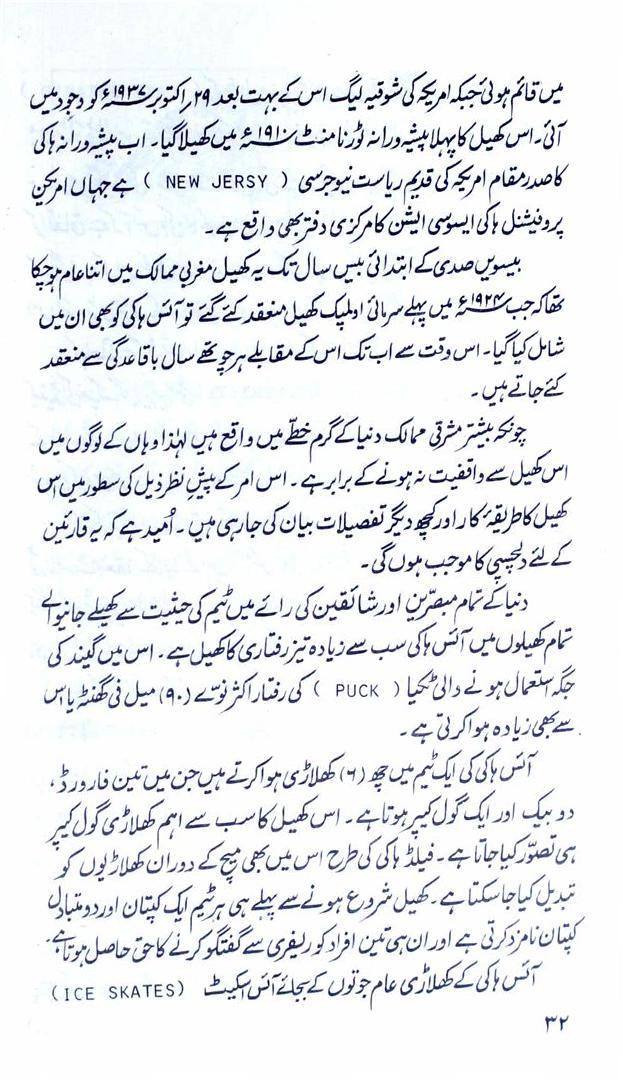 میں قائم ہوئی جبکہ امریکہ کی شوقیہ لیگ اس کے بہت بعد ۲۹ر اکتوبر ۱۹۳۷ء کو وجود میں
آئی۔ اس کھیل کا پہلا پیشہ ورانہ ٹورنامنٹ ۱۹۱۰ء میں کھیلا گیا۔ اب پیشہ ورانہ ہاکی
کا صدر مقام امریکہ کی قدیم ریاست نیو جرسی ( NEW JERSY ) ہے جہاں امریکن
پروفیشنل ہاکی ایسوسی ایشن کا مرکزی دفتر بھی واقع ہے۔
بیسویں صدی کے ابتدائی بیس سال تک یہ کھیل مغربی ممالک میں اتنا عام ہو چکا
تھا کہ جب ۱۹۲۴ء میں پہلے سرمائی اولمپک کھیل منعقد کئے گئے تو آئس ہاکی کو بھی ان میں
شامل کیا گیا۔ اس وقت سے اب تک اس کے مقابلے ہر چوتھے سال باقاعدگی سے منعقد
کئے جاتے ہیں۔
چونکہ بیشتر مشرقی ممالک دنیا کے گرم خطّے میں واقع ہیں لہٰذا وہاں کے لوگوں میں
اس کھیل سے واقفیت نہ ہونے کے برابر ہے۔ اس امر کے پیشِ نظر ذیل کی سطور میں اس
کھیل کا طریقۂ کار اور کچھ دیگر تفصیلات بیان کی جا رہی ہیں۔ اُمید ہے کہ یہ قارئین
کے لئے دلچسپی کا موجب ہوں گی۔
دنیا کے تمام مبصّرین اور شائقین کی رائے میں ٹیم کی حیثیت سے کھیلے جانیوالے
تمام کھیلوں میں آئس ہاکی سب سے زیادہ تیز رفتاری کا کھیل ہے۔ اس میں گیند کی
جگہ استعمال ہونے والی ٹکیا ( PUCK ) کی رفتار اکثر نوّے (۹۰) میل فی گھنٹہ یا اس
سے بھی زیادہ ہوا کرتی ہے۔
آئس ہاکی کی ایک ٹیم میں چھ (۶) کھلاڑی ہوا کرتے ہیں جن میں تین فارورڈ،
دو بیک اور ایک گول کیپر ہوتا ہے۔ اس کھیل کا سب سے اہم کھلاڑی گول کیپر
ہی تصوّر کیا جاتا ہے۔ فیلڈ ہاکی کی طرح اس میں بھی میچ کے دوران کھلاڑیوں کو
تبدیل کیا جا سکتا ہے۔ کھیل شروع ہونے سے پہلے ہی ہر ٹیم ایک کپتان اور دو متبادل
کپتان نامزد کرتی ہے اور ان ہی تین افراد کو ریفری سے گفتگو کرنے کا حق حاصل ہوتا ہے۔
آئس ہاکی کے کھلاڑی عام جوتوں کے بجائے آئس اسکیٹ (ICE SKATES)
۳۲